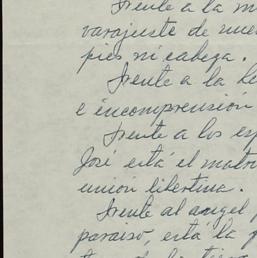 Frente a la m
varajuste de nue
pies ni cabeza.
Frente a la he
e incomprensión
Frente a los esp
José está el matri
unión libertina.
Frente al angel
paraíso, está la